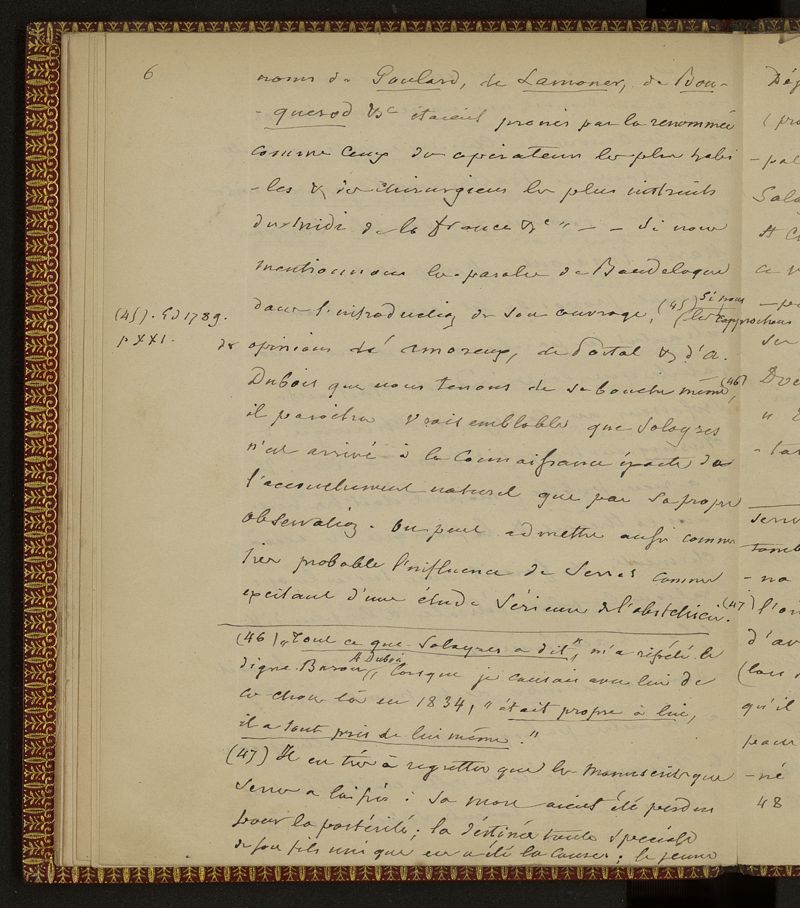 6
noms de Goulard, de Lamorier, de Bou-
- querod &c étaient prônés par la renommée
comme ceux des opérateurs les plus habi
- les & des chirurgiens les plus instruits
du midi de la France &c " - - Si nous
mentionnons les paroles de Baudelocque
dans l'introduction de son ouvrage, (45) Si nous
les rapprochons
(45). Ed 1789.
p XXI.
des opinions d'amoreux, de Portal & d'A.
Dubois que nous tenons de sa bouche même, (46)
il paraîtra vraisemblable que Solayres
n'est arrivé à la connaissance exacte de
l'accouchement naturel que par sa propre
observation. On peut admettre aussi comme
très probable l'influence de Serres comme
excitant d'une étude sérieuse de l'obstétricie. (47)
(46) "Tout ce que Solayres a dit", m'a répété le
digne Baron A Dubois, lorsque je causais avec lui de
ce chou là en 1834, "était propre à lui,
il a tout pris de lui même."
(47) Il est très à regretter que les manuscrits que
Serres a laissés à sa mort aient été perdus
pour la postérité; la destinée toute spéciale
de son fils unique en a été la cause; le jeune
Dép
(pro
- pal
Sola
ce
- pe
ser
Doc
- tar
Serre
tomb
- na
l'o
d'av
qu'il
pour
- né
48